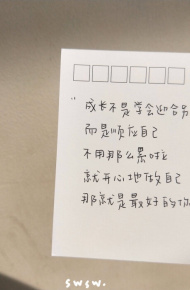 "成长不是学会迎合别
而是顺应自己
不用那么累啦
就开心地做自己
那就是最好的你
swsw.